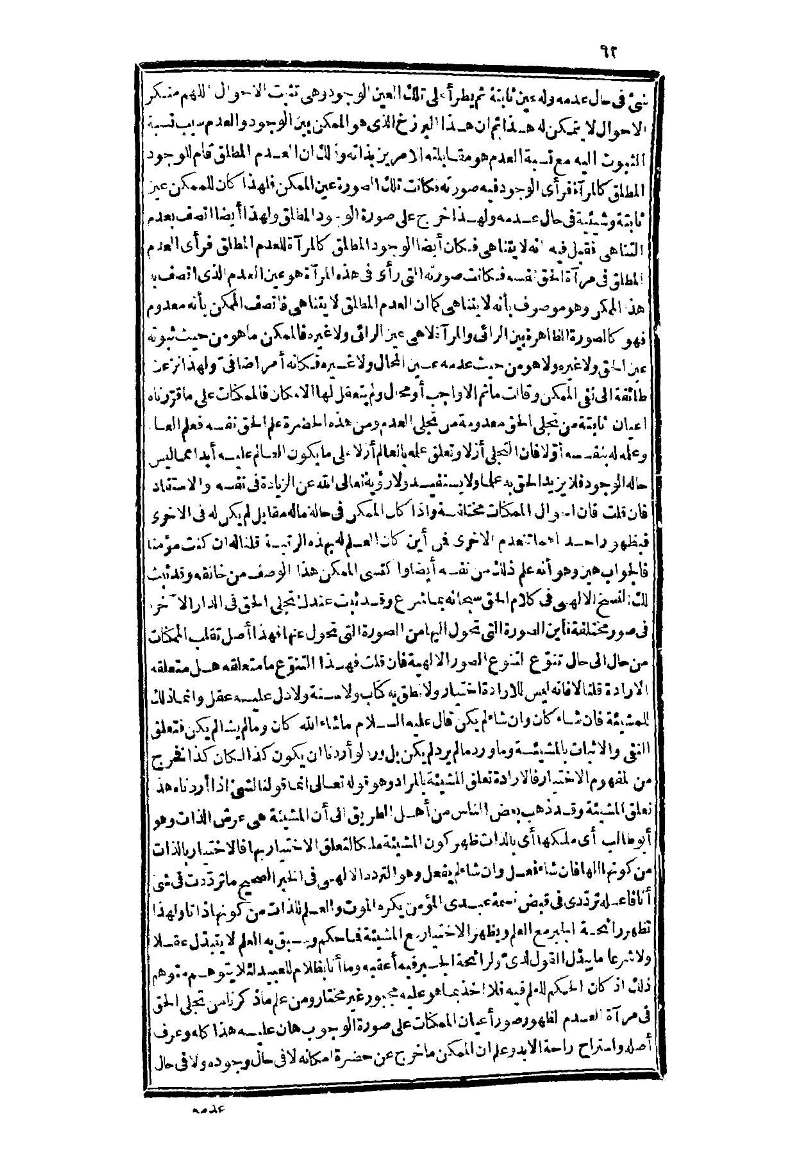 ٩٢
شئ فى حال عدمه وله عين ثابتة ثم يطرأ على تلك العين الوجود وهى تثبت الاحوال اللهم منكر
الاحوال لا يتمكن له هذا ثم ان هذا البرزخ الذى هو الممكن بين الوجود والعدم سبب نسبة
الثبوت اليه مع نسبة العدم هو مقابلته الامرين بذاته وذلك ان العدم المطلق قام للوجود
المطلق كالمرآة فرأى الوجود فيه صورته فكانت تلك الصورة عين الممكن فلهذا كان للممكن عين
ثابتة وشيئية فى حال عدمه ولهذا خرج على صورة الوجود المطلق ولهذا أيضا اتصف بعدم
التناهى فقيل فيه انه لا يتناهى فكان أيضا الوجود المطلق كالمرآة للعدم المطلق فرأى العدم
المطلق فى مرآة الحق نفسه فكانت صورته التى رأى فى هذه المرآة هو عين العدم الذى اتصف به
هذا الممكن وهو موصوف بأنه لا يتناهى كما ان العدم المطلق لا يتناهى فاتصف الممكن بأنه معدوم
فهو كالصورة الظاهرة بين الرائى والمرآة لا هى عين الرائى ولا غيره فالممكن ما هو من حيث ثبوته
عين الحق ولا غيره ولا هو من حيث عدمه عين المحال ولا غيره فكأنه أمر اضافى ولهذا نزعت
طائفة الى نفى الممكن وقالت ما ثم الا واجب أو محال ولم يتعقل لها الامكان فالممكنات على ما قررناه
اعيان ثابتة من تجلى الحق معدومة من تجلى العدم ومن هذه الحضرة علم الحق نفسه فعلم العالم
وعلمه له بنفسه أزلا فان التجلى أزلا وتعلق علمه بالعالم أزلا على ما يكون العالم عليه أبدا مما ليس
حاله الوجود فلا يزيد الحق به علما ولا يستفيد ولا رؤية تعالى الله عن الزيادة فى نفسه والاستفادة
فان قلت فان احوال الممكنات مختلفة واذا كان الممكن فى حالة ما له مقابل لم يكن له فى الاخرى
فبظهور احداهما تنعدم الاخرى فمن أين كان العلم له بهذه الرتبة قلنا له ان كنت مؤمنا
فالجواب هين وهو أنه علم ذلك من نفسه أيضا واكتسى الممكن هذا الوصف من خالقه وقد ثبت
لك النسخ الالهى فى كلام الحق سبحانه بما شرع وقد ثبت عندك تجلى الحق فى الدار الآخرة
فى صور مختلفة فأين الصورة التى تحول اليها من الصورة التى تحول عنها فهذا أصل تقلب الممكنات
من حال الى حال تتنوع لتنوع الصور الالهية فان قلت فهذا التنوع ما متعلقه هل متعلقه
الارادة قلنا لا فانه ليس للارادة اختيار ولا نطق به كتاب ولا سنة ولا دل عليه عقل وانما ذلك
للمشيئة فان شاء كان وان شاء لم يكن قال عليه السلام ما شاء الله كان وما لم يشا لم يكن فتعلق
النفى والاثبات بالمشيئة وما ورد ما لم يرد لم يكن بل ورد لو أردنا ان يكون كذا لكان كذا فخرج
من المفهوم الاختيار فالارادة تعلق المشيئة بالمراد وهو قوله تعالى انما قولنا لشئ اذا أردناه هذا
تعلق المشيئة وقد ذهب بعض الناس من أهل الطريق الى أن المشيئة هى عرش الذات وهو
أبو طالب أى ملكها أى بالذات ظهر كون المشيئة ملكا لتعلق الاختيار بها فالاختيار بالذات
من كونها الها فان شاء فعل وان شاء لم يفعل وهو التردد الالهى فى الخبر الصحيح ما ترددت فى شئ
أنا فاعله ترددى فى قبض نسمة عبدى المؤمن يكره الموت والعلم للذات من كونها ذاتا ولهذا
تظهر رائحة الجبر مع العلم ويظهر الاختيار مع المشيئة فما حكم وسبق به العلم لا يتبدل عقلا
ولا شرعا ما يبدل القول لدى ولرائحة الجبر فيه أعقبه وما أنا بظلام للعبيد لئلا يتوهم متوهم
ذلك اذ كان الحكم للعلم فيه فلا اخذ بما هو عليه مجبور غير مختار ومن علم ما ذكرناه من تجلى الحق
فى مرآة العدم لظهور صور أعيان الممكنات على صورة الوجوب هان عليه هذا كله وعرف
أصله واستراح راحة الابد وعلم ان الممكن ما خرج عن حضرة امكانه لا فى حال وجوده ولا فى حال
عدمه